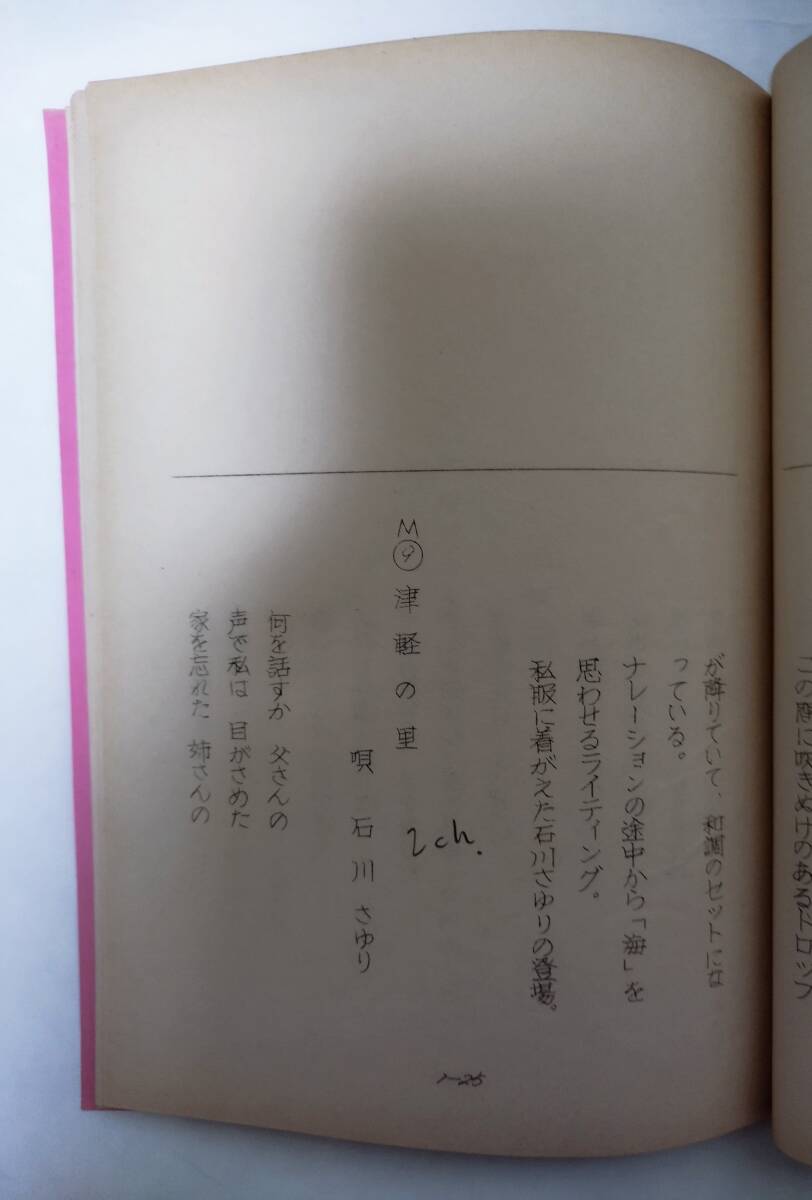 この間に吹きぬけのあるドロップ
が降りていて、和調のセットにな
っている。
ナレーションの途中から「海」を
思わせるライティング。
私服に着がえた石川さゆりの登場。
M⑨ 津軽の里
2ch.
唄 石川さゆり
何を話すか 父さんの
声で私は 目がさめた
家を忘れた 姉さんの
1-25